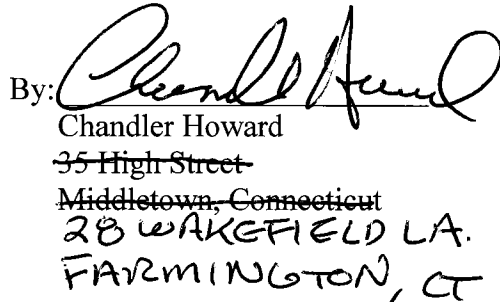 By: Chandler Howard
Chandler Howard
35 High Street
Middletown, Connecticut
28 WAKEFIELD LA.
FARMINGTON, CT